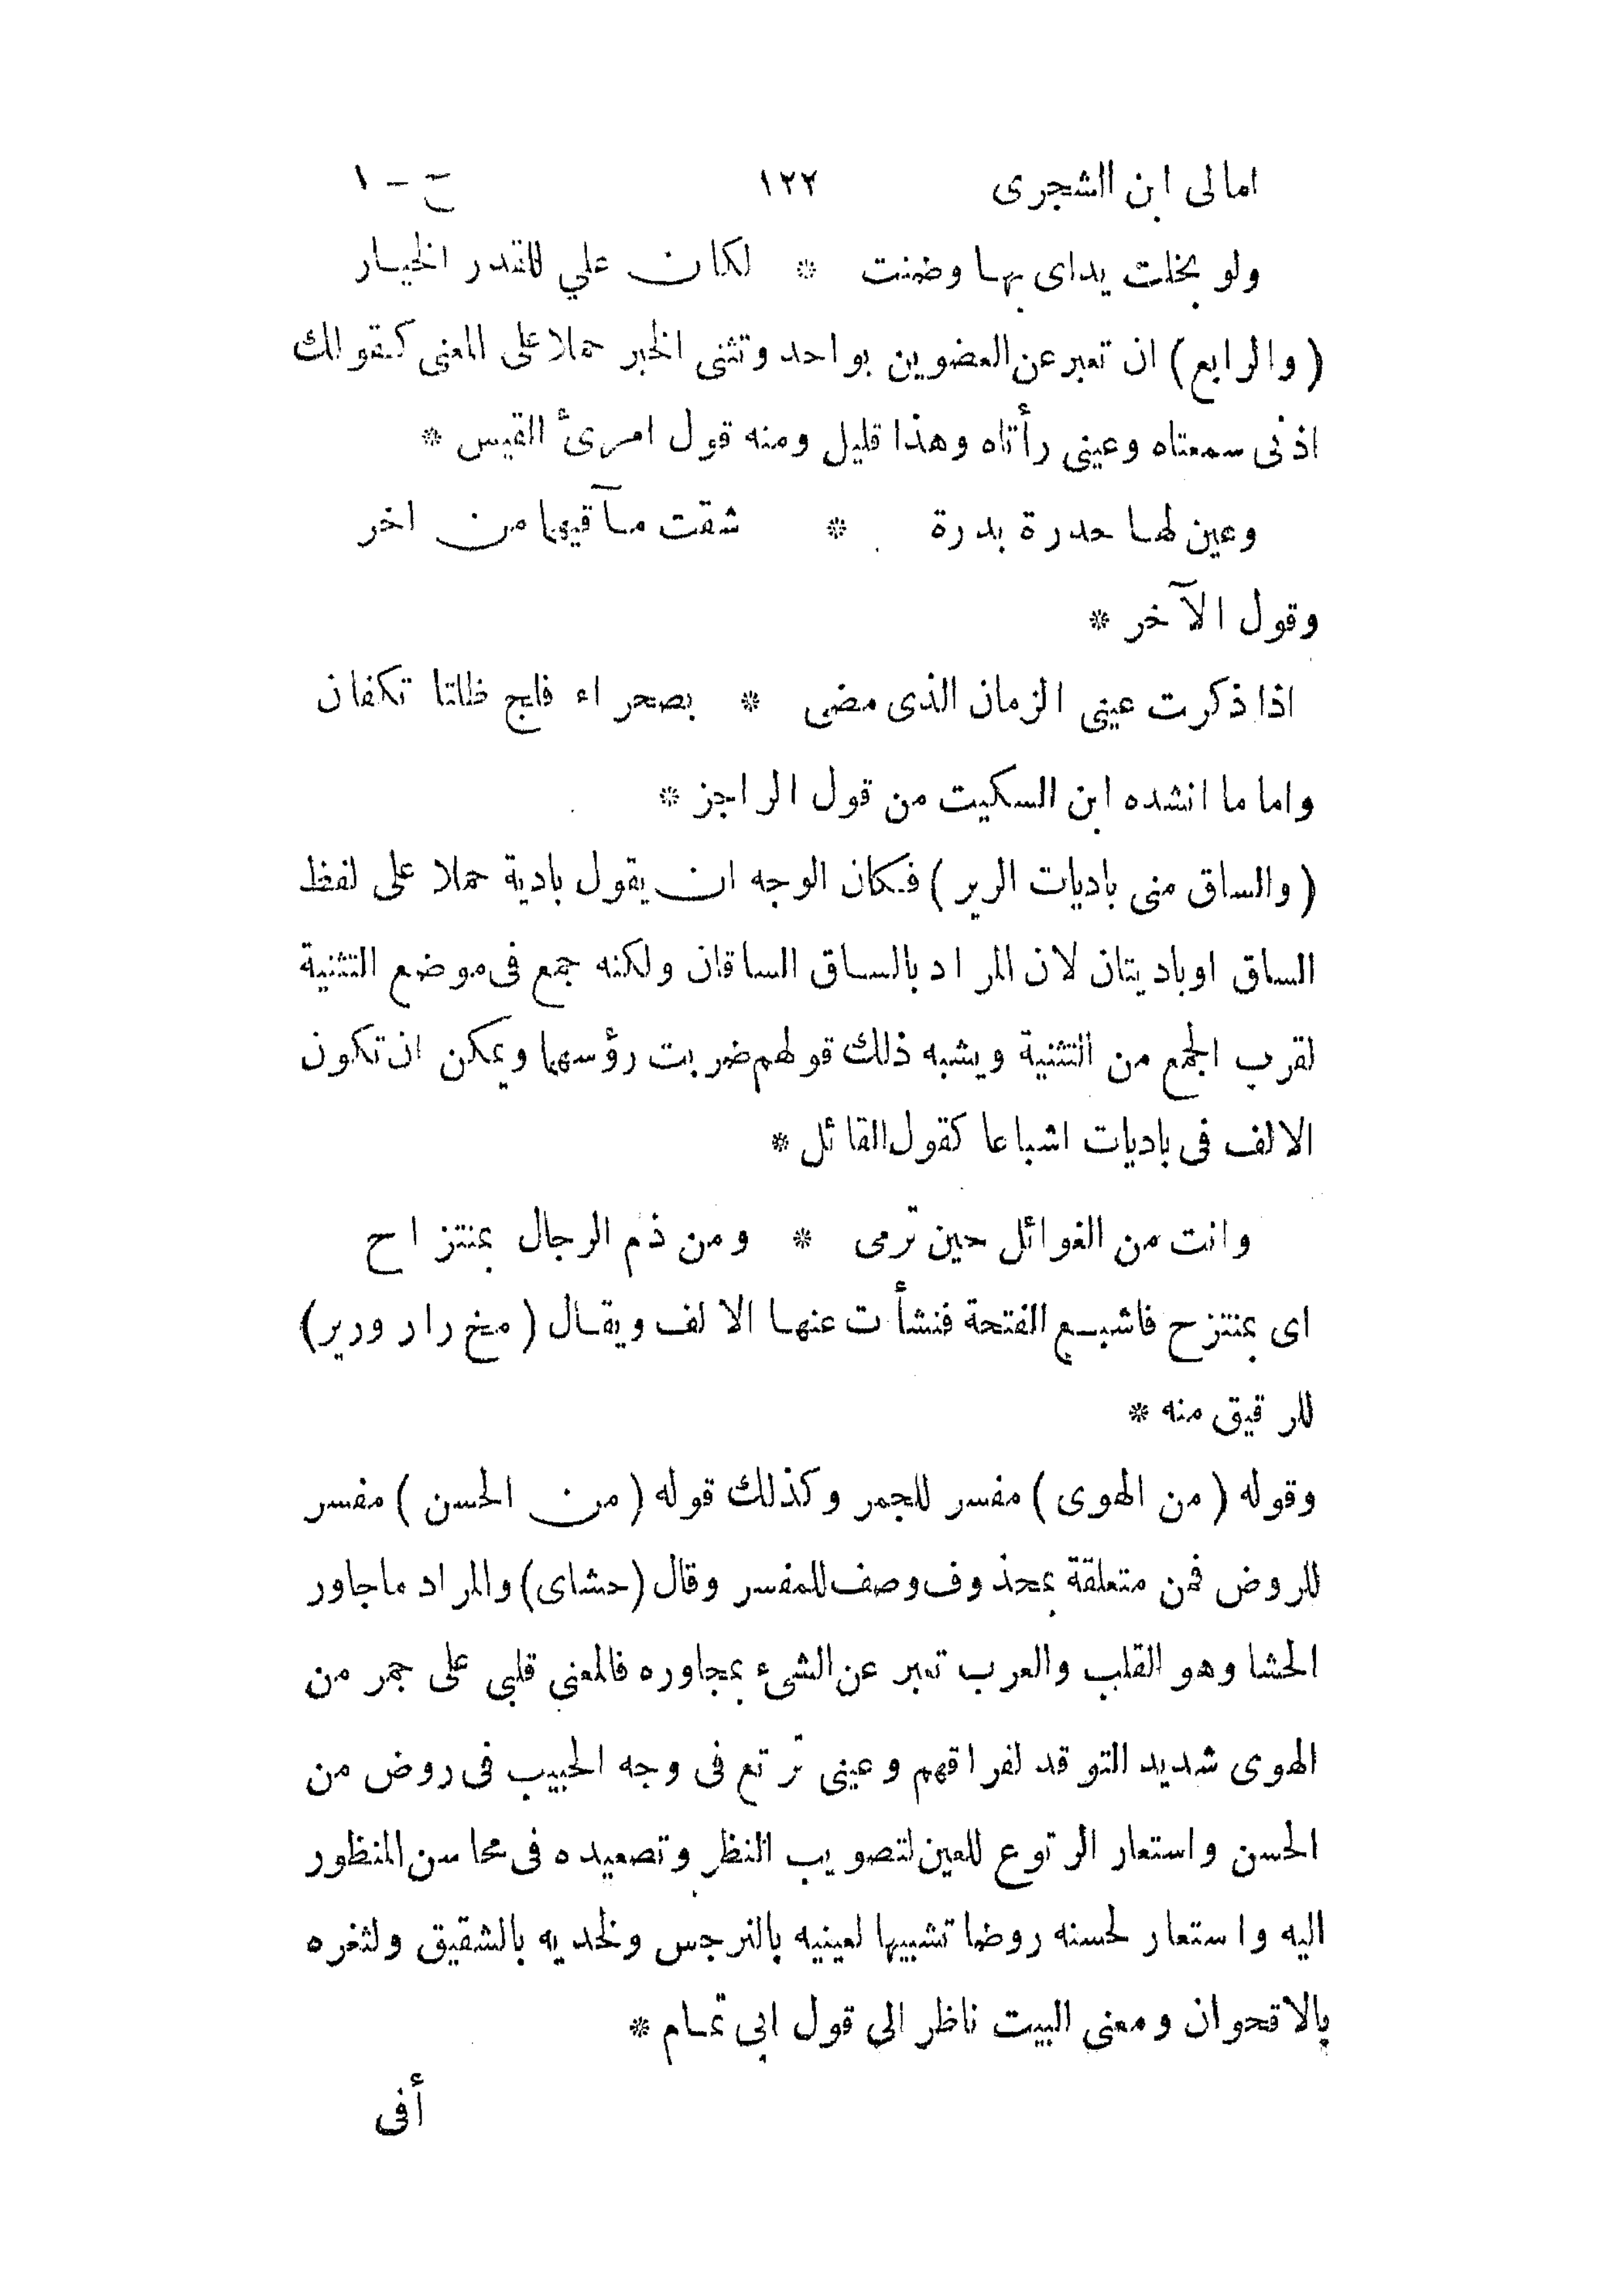 امالى ابن الشجرى ١٢٢ ج – ١
ولو بخلت يداى بها وضنت * لكان علي للقدر الخيار
(والرابع) ان تعبر عن العضوين بواحد وتثنى الخبر حملا على المعنى كقولك
اذنى سمعتاه وعينى رأتاه وهذا قليل ومنه قول امرئ القيس *
وعين لها حدرة بدرة * شقت مآقيهما من اخر
وقول الآخر *
اذا ذكرت عينى الزمان الذى مضى * بصحراء فلج ظلتا تكفان
واما ما انشده ابن السكيت من قول الراجز *
(والساق منى باديات الرير) فكان الوجه ان يقول بادية حملا على لفظ
الساق اوباديتان لان المراد بالساق الساقان ولكنه جمع فى موضع التثنية
لقرب الجمع من التثنية ويشبه ذلك قولهم ضربت رؤسهما ويمكن ان تكون
الالف فى باديات اشباعا كقول القائل *
وانت من الغوائل حين ترمى * ومن ذم الرجال بمنتزاح
اى بمنتزح فاشبع الفتحة فنشأت عنها الالف ويقال (مخ رار ورير)
للرقيق منه *
وقوله (من الهوى) مفسر للجمر وكذلك قوله (من الحسن) مفسر
للروض فمن متعلقة بمحذوف وصف للمفسر وقال (حشاى) والمراد ماجاور
الحشا وهو القلب والعرب تعبر عن الشىء بمجاوره فالمعنى قلبى على جمر من
الهوى شديد التوقد لفراقهم وعينى ترتع فى وجه الحبيب فى روض من
الحسن واستعار الرتوع للعين لتصويب النظر وتصعيده فى محاسن المنظور
اليه واستعار لحسنه روضا تشبيها لعينيه بالنرجس ولخديه بالشقيق ولثغره
بالاقحوان ومعنى البيت ناظر الى قول ابى تمام *
أفى